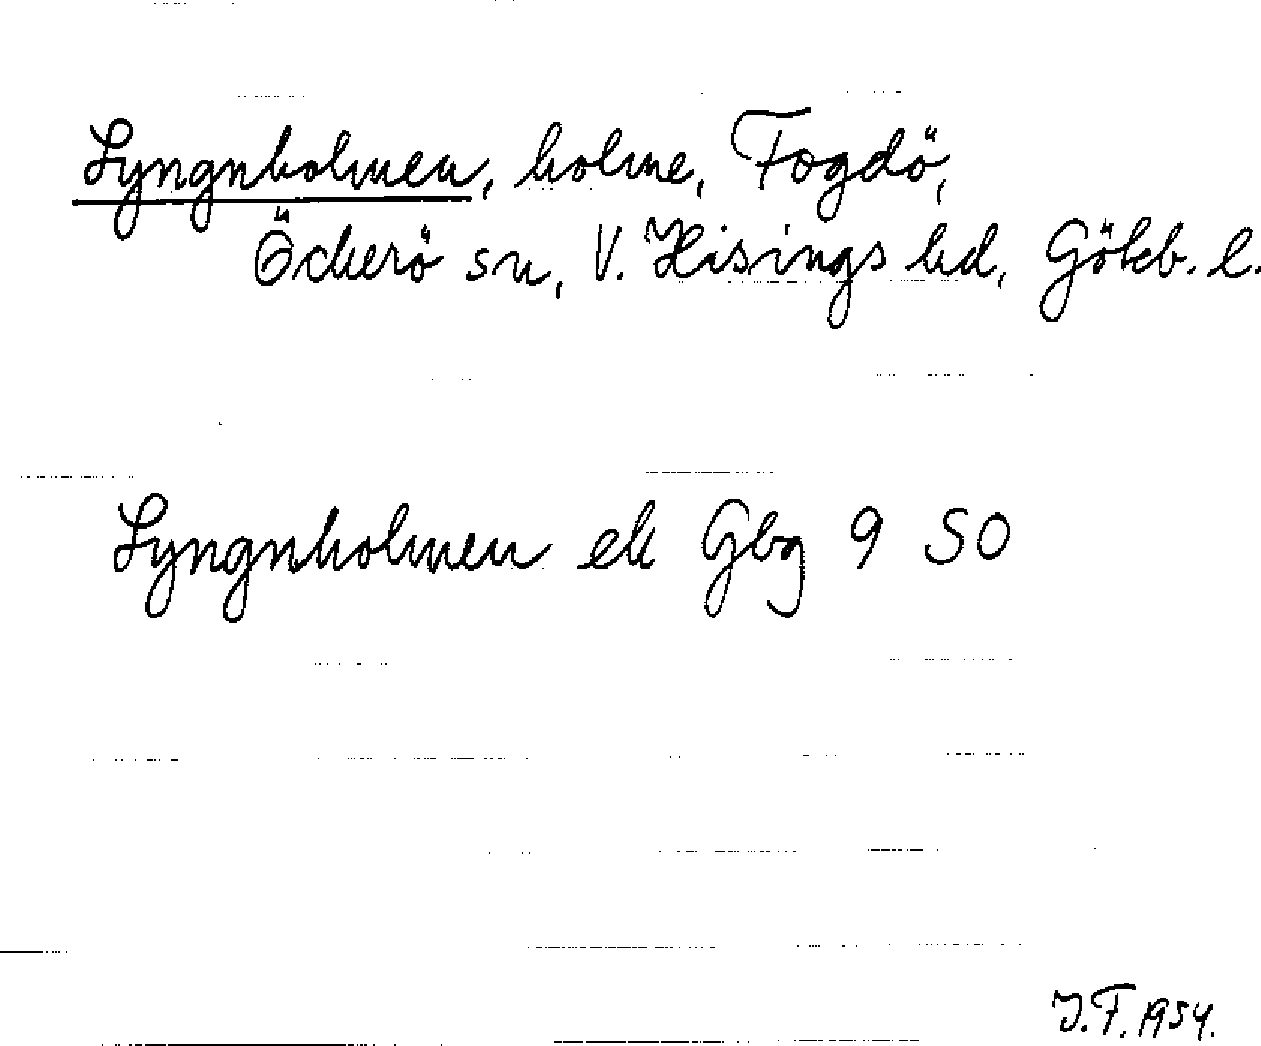 Lyngnholmen, holme, Fogdö,
Öckerö sn, V. Hisings hd, Göteb. l.
Lyngnholmen ek Gbg 9 SO
J.F. 1954.